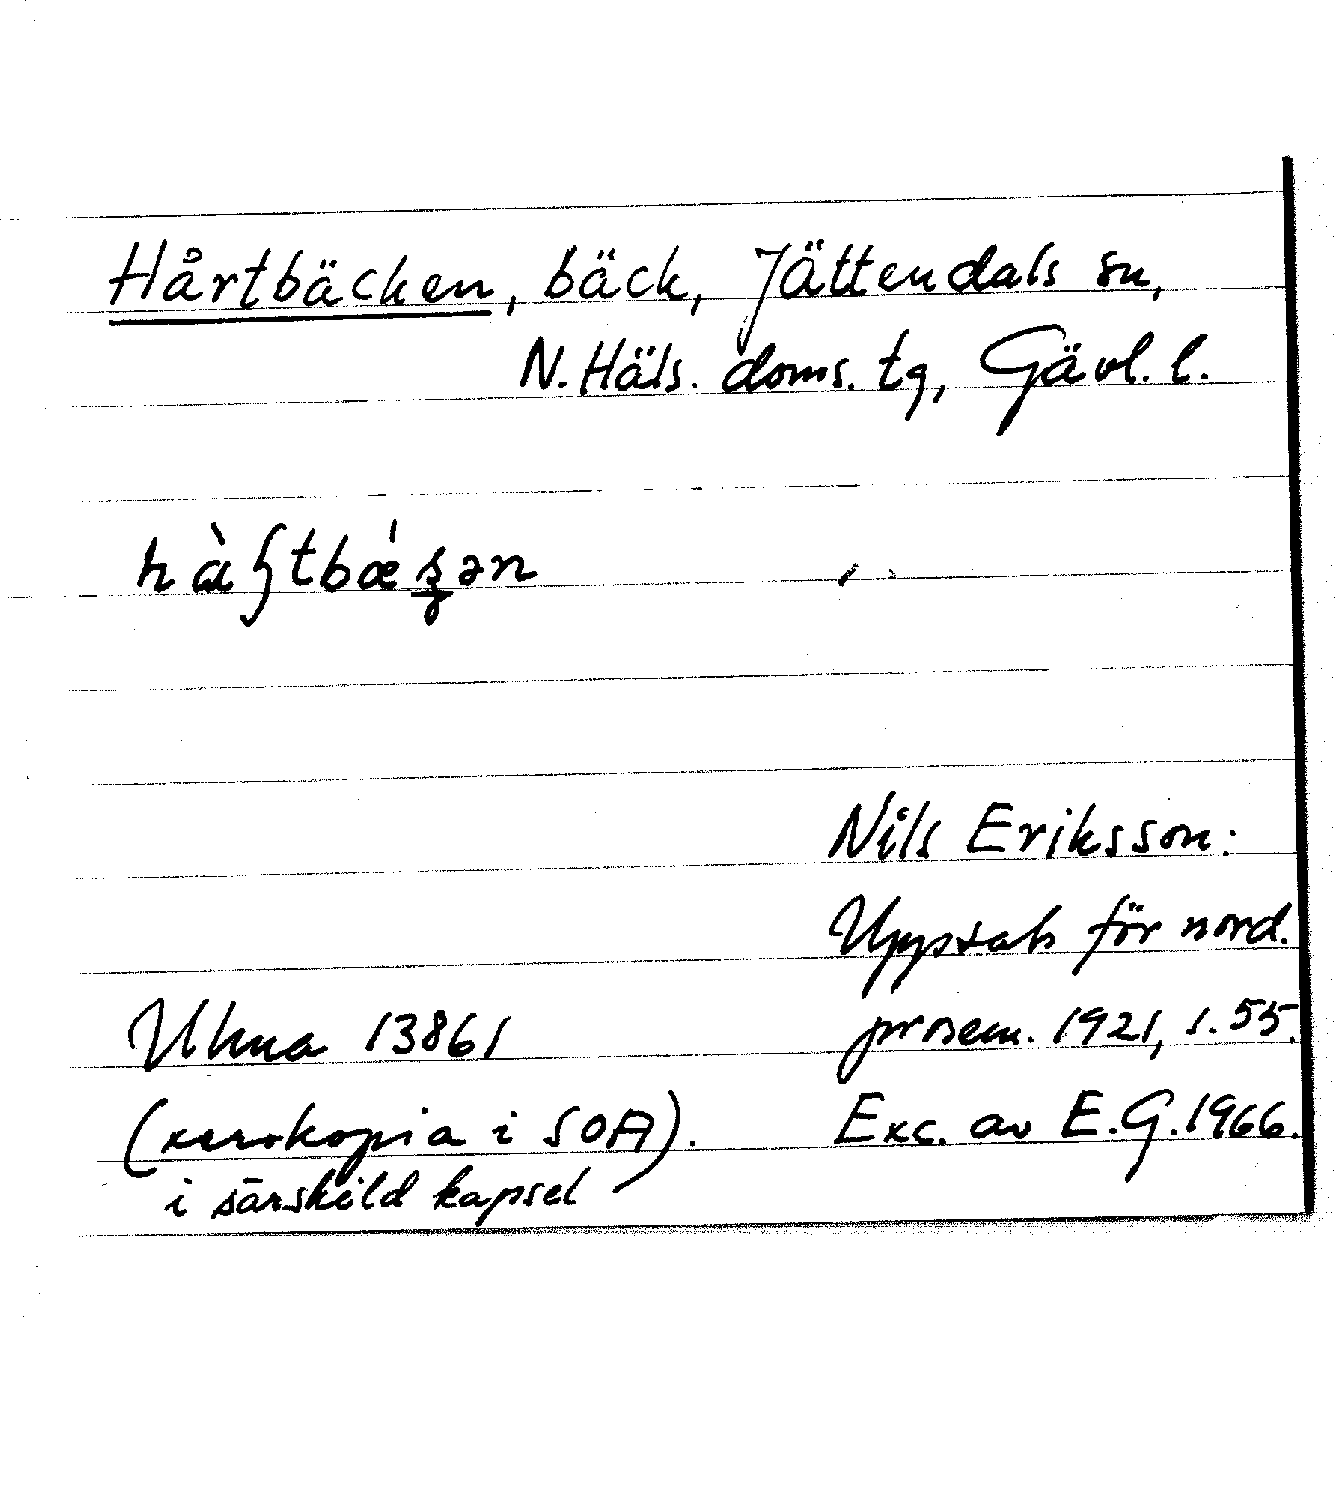 Hårtbäcken, bäck, Jättendals sn,
N. Häls. doms. tg, Gävl. l.
Nils Eriksson:
Uppsats för nord.
prosem. 1921, s. 55.
Exc. av E.G. 1966.
Ukna 13861
(xerokopia i SOA).
i särskild kapsel